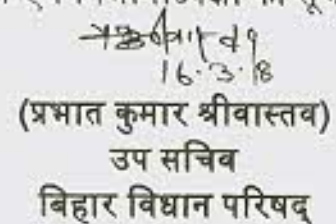 16.3.18
(प्रभात कुमार श्रीवास्तव)
उप सचिव
बिहार विधान परिषद्